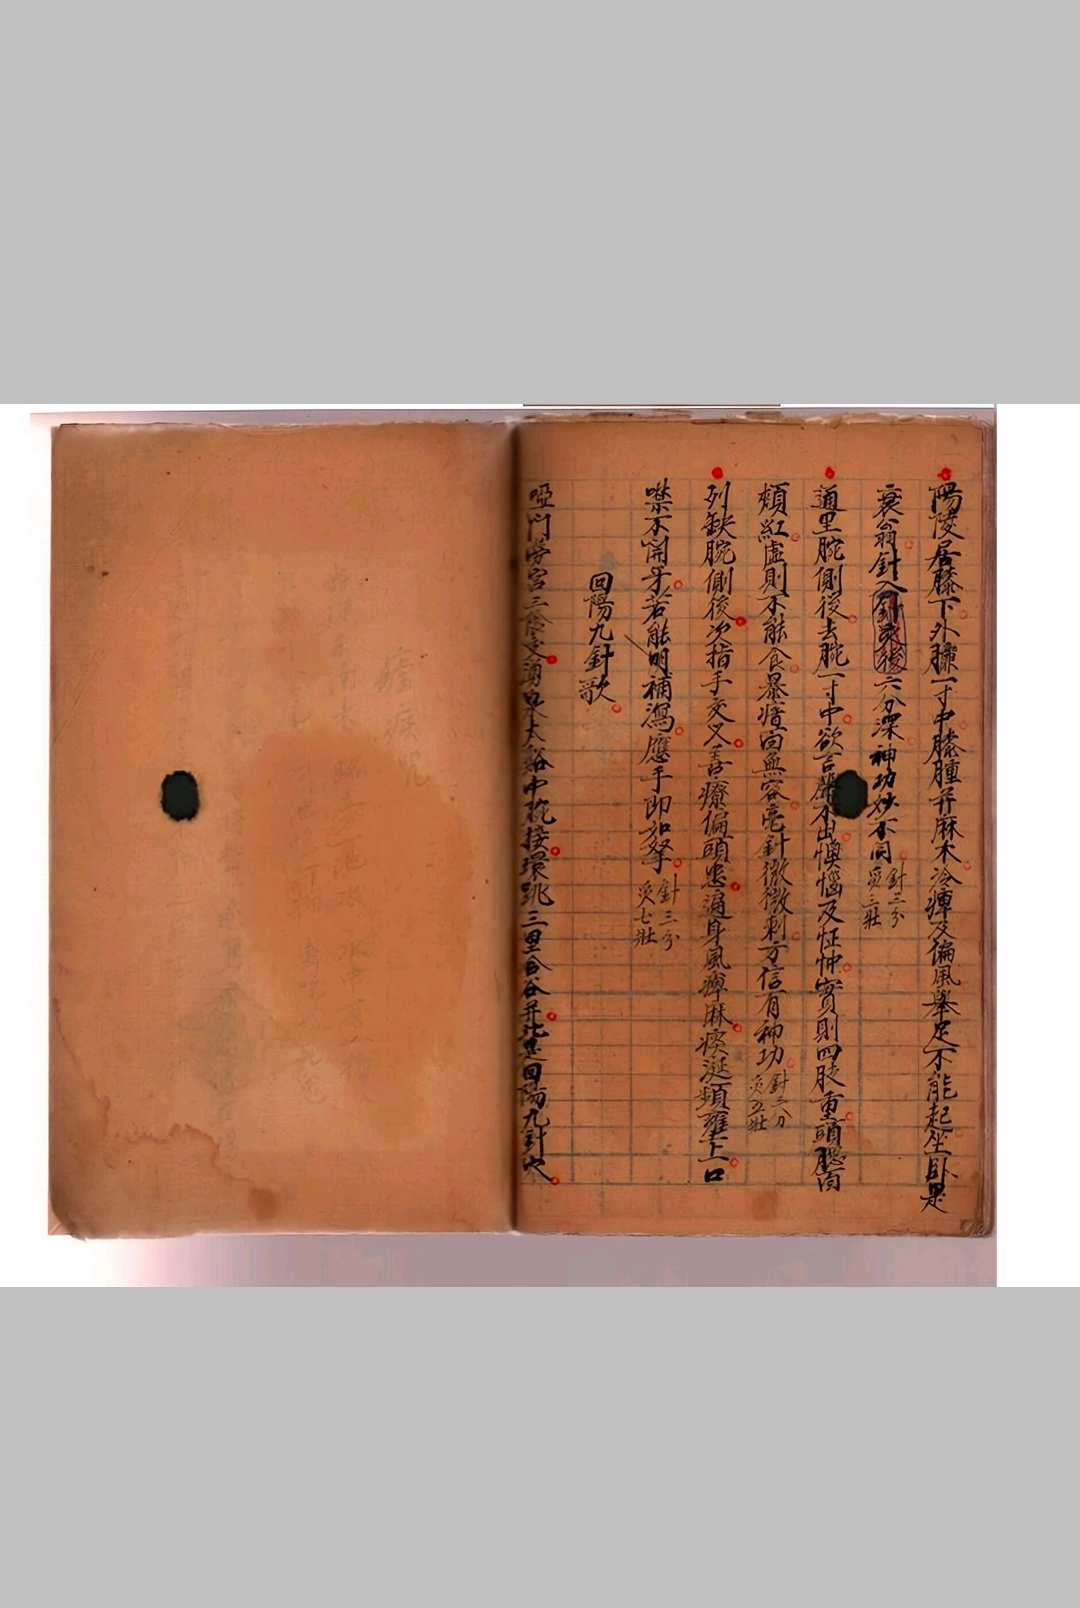 陽陵居膝下外臁一寸中膝腫并麻木冷痺及偏風舉足不能起坐卧是
衰翁針入六分深神功妙不同針三分灸三壯
通里腕側後去腕一寸中欲言聲不出懊惱及怔忡實則四肢重頭腮面
頰紅虛則不能食暴瘖面無容毫針微微刺方信有神功針三分灸五壯
列缺腕側後次指手交叉善療偏頭患遍身風痺麻痰涎頻壅上口
噤不開牙若能明補瀉應手即如拏針三分灸七壯
回陽九針歌
啞門勞宮三陰交涌泉太谿中脘接環跳三里合谷并此是回陽九針穴
瘧疾咒